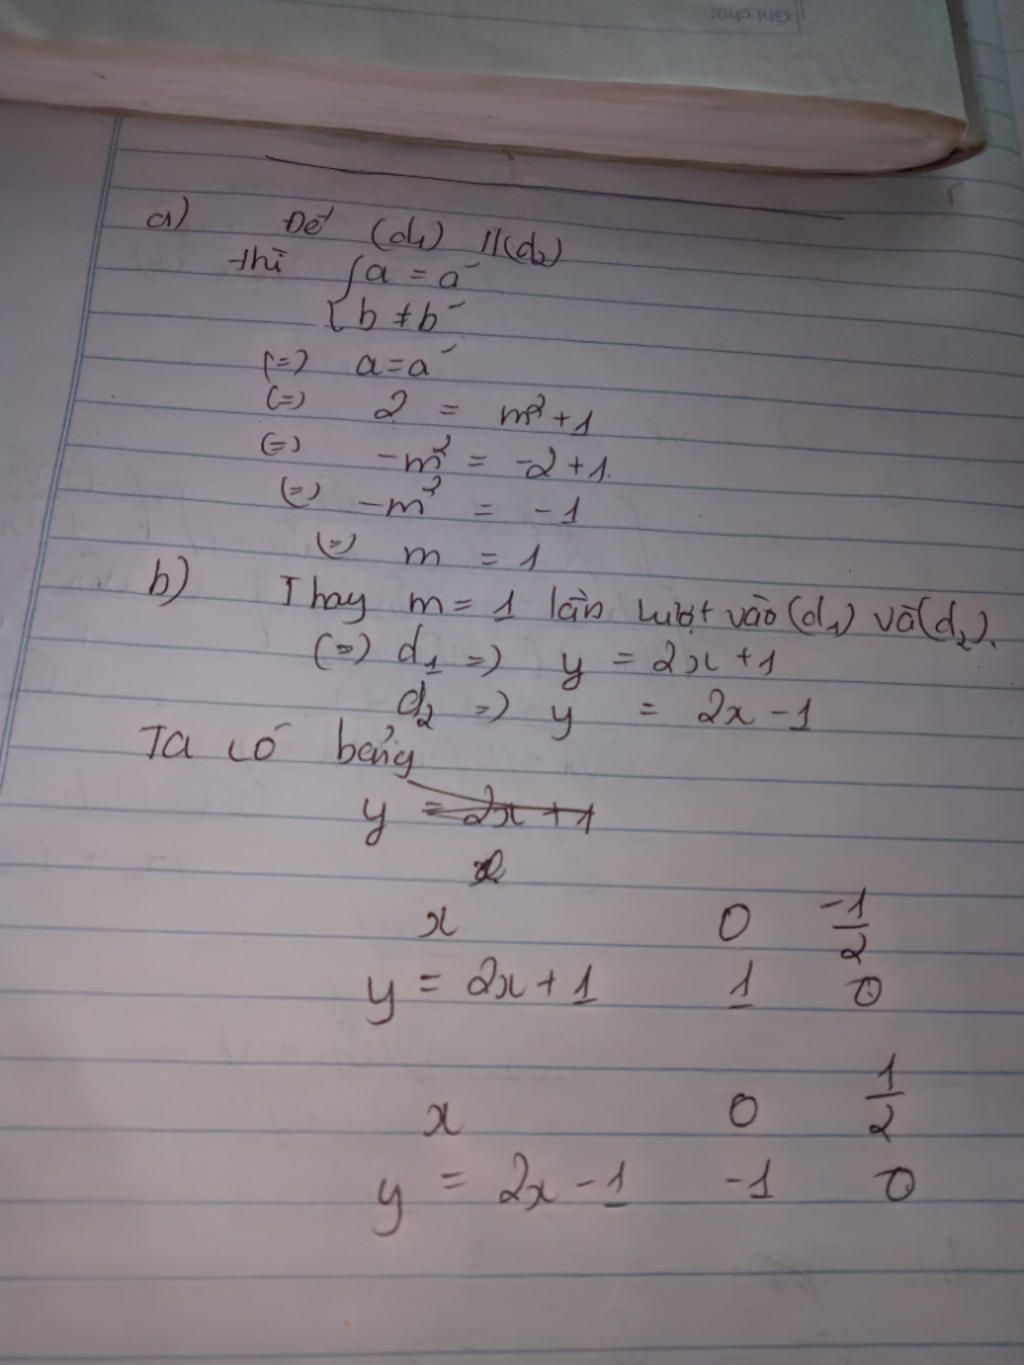 Ghi chú:
a) Để (d₁) // (d₂)
thì { a = a'
{ b ≠ b'
(=) a = a'
(=) 2 = m² + 1
(=) -m² = -2 + 1.
(=) -m² = -1
(=) m = 1
b) Thay m = 1 lần lượt vào (d₁) và (d₂).
(=) d₁ => y = 2x + 1
d₂ => y = 2x - 1
Ta có bảng
y = 2x + 1
x
x 0 -1/2
y = 2x + 1 1 0
x 0 1/2
y = 2x - 1 -1 0